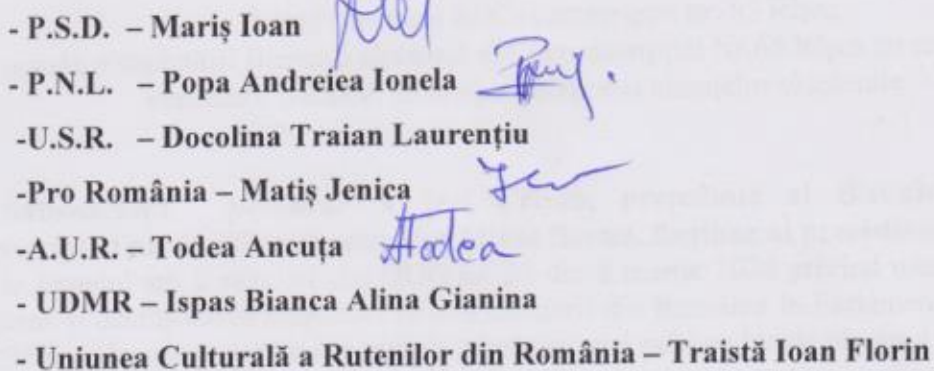 - P.S.D. – Mariș Ioan
- P.N.L. – Popa Andreiea Ionela
-U.S.R. – Docolina Traian Laurențiu
-Pro România – Matiș Jenica
-A.U.R. – Todea Ancuța Atodea
- UDMR – Ispas Bianca Alina Gianina
- Uniunea Culturală a Rutenilor din România – Traistă Ioan Florin